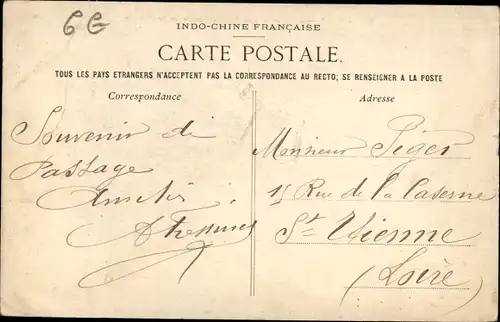 6G
INDO-CHINE FRANÇAISE
CARTE POSTALE.
TOUS LES PAYS ETRANGERS N'ACCEPTENT PAS LA CORRESPONDANCE AU RECTO; SE RENSEIGNER A LA POSTE
Correspondance
Souvenir di
Passage
Adresse
Monsieur
Rue de la Caserne
St= Etienne
(Loire)